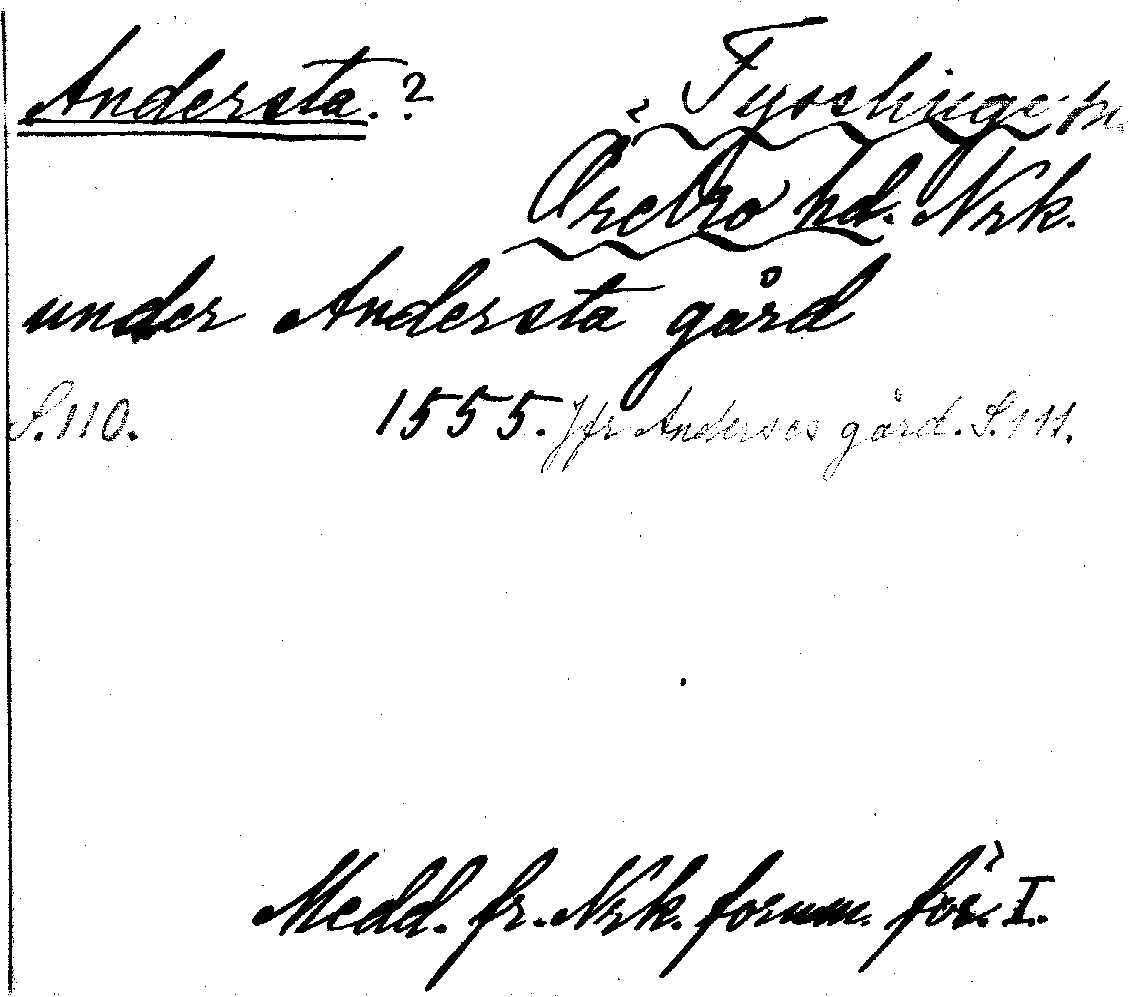 Andersta.? Tysslinge sn.
Örebro hd. Nrk.
under Andersta gård
S.110. 1555. Jfr Anderses gård. S.111.
Medd. fr. Nrk. fornm. för. I.